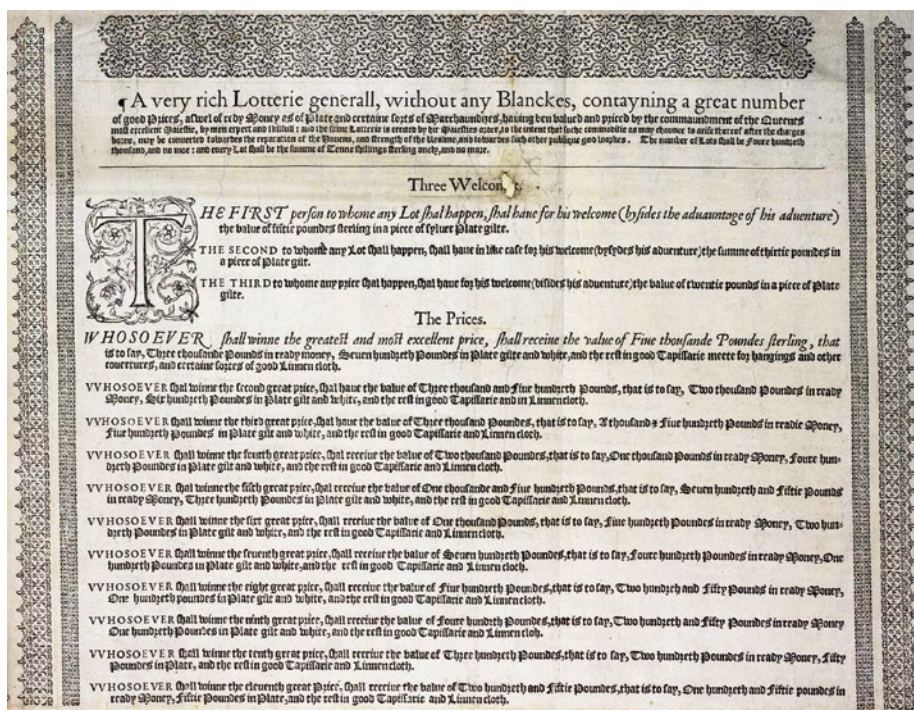 ¶ A very rich Lotterie generall, without any Blanckes, contayning a great number
of good Prices, aswel of redy Money as of Plate and certaine sorts of Marchaundizes, having ben valued and priced by the commaundment of the Queenes
most excellent Maiestie, by men expert and skilfull: and the same Lotterie is erected by hir Maiesties order, to the intent that suche commoditie as may chaunce to arise therof after the charges
borne, may be conuerted towardes the reparation of the Hauens, and strength of the Realme, and towardes such other publique good workes. The number of Lots shall be Foure hundreth
thousand, and no more: and euery Lot shall be the summe of Tenne shillings sterling onely, and no more.
Three Welcom
THE FIRST person to whome any Lot shal happen, shal haue for his welcome (bysides the aduauntage of his aduenture)
the value of fiftie poundes sterling in a piece of syluer Plate gilte.
THE SECOND to whome any Lot shall happen, shall haue in like case for his welcome (bysydes his aduenture) the summe of thirtie poundes in
a piece of Plate gilt.
THE THIRD to whome any price shal happen, shal haue for his welcome (bisides his aduenture) the value of twentie pounds in a piece of Plate
gilte.
The Prices.
WHOSOEVER shall winne the greatest and most excellent price, shall receiue the value of Fiue thousande Poundes sterling, that
is to say, Three thousande Pounds in ready money, Seuen hundreth Poundes in Plate gilte and white, and the rest in good Tapissarie meete for hangings and other
couertures, and certaine sortes of good Linnen cloth.
VVHOSOEVER shal winne the second great price, shal haue the value of Three thousand and Fiue hundreth Pounds, that is to say, Two thousand Poundes in ready
Money, Six hundreth Poundes in Plate gilt and white, and the rest in good Tapissarie and in Linnen cloth.
VVHOSOEVER shall winne the third great price, shal haue the value of Three thousand Poundes, that is to say, A thousand & Fiue hundreth Pounds in readie Money,
Fiue hundreth Poundes in Plate gilt and white, and the rest in good Tapissarie and Linnen cloth.
VVHOSOEVER shall winne the fourth great price, shal receiue the value of Two thousand Poundes, that is to say, One thousand Pounds in ready Money, Foure hun-
dreth Poundes in Plate gilt and white, and the rest in good Tapissarie and Linnen cloth.
VVHOSOEVER shal winne the fifth great price, shall receiue the value of One thousande and Fiue hundreth Poundes, that is to say, Seuen hundreth and Fiftie Pounds
in ready Money, Three hundreth Poundes in Plate gilt and white, and the rest in good Tapissarie and Linnen cloth.
VVHOSOEVER shall winne the sixt great price, shall receiue the value of One thousand Pounds, that is to say, Fiue hundreth Poundes in ready Money, Two hun-
dreth Poundes in Plate gilt and white, and the rest in good Tapissarie and Linnen cloth.
VVHOSOEVER shall winne the seuenth great price, shall receiue the value of Seuen hundreth Poundes, that is to say, Foure hundreth Poundes in ready Money, One
hundreth Poundes in Plate gilt and white, and the rest in good Tapissarie and Linnen cloth.
VVHOSOEVER shall winne the eight great price, shall receiue the value of Fiue hundreth Poundes, that is to say, Two hundreth and Fifty Pounds in ready Money,
One hundreth poundes in Plate gilt and white, and the rest in good Tapissarie and Linnen cloth.
VVHOSOEVER shall winne the ninth great price, shall receiue the value of Foure hundreth Poundes, that is to say, Two hundreth and Fifty Poundes in ready Money
One hundreth Poundes in Plate gilt and white, and the rest in good Tapissarie and Linnen cloh.
VVHOSOEVER shall winne the tenth great price, shall receiue the value of Three hundreth Poundes, that is to say, Two hundreth Poundes in ready Money, Fifty
Poundes in Plate, and the rest in good Tapissarie and Linnen cloth.
VVHOSOEVER shall winne the eleuenth great Price, shall receiue the value of Two hundreth and Fiftie Poundes, that is to say, One hundreth and Fiftie poundes in
ready Money, Fiftie Poundes in Plate, and the rest in good Tapissarie and Linnen cloth.